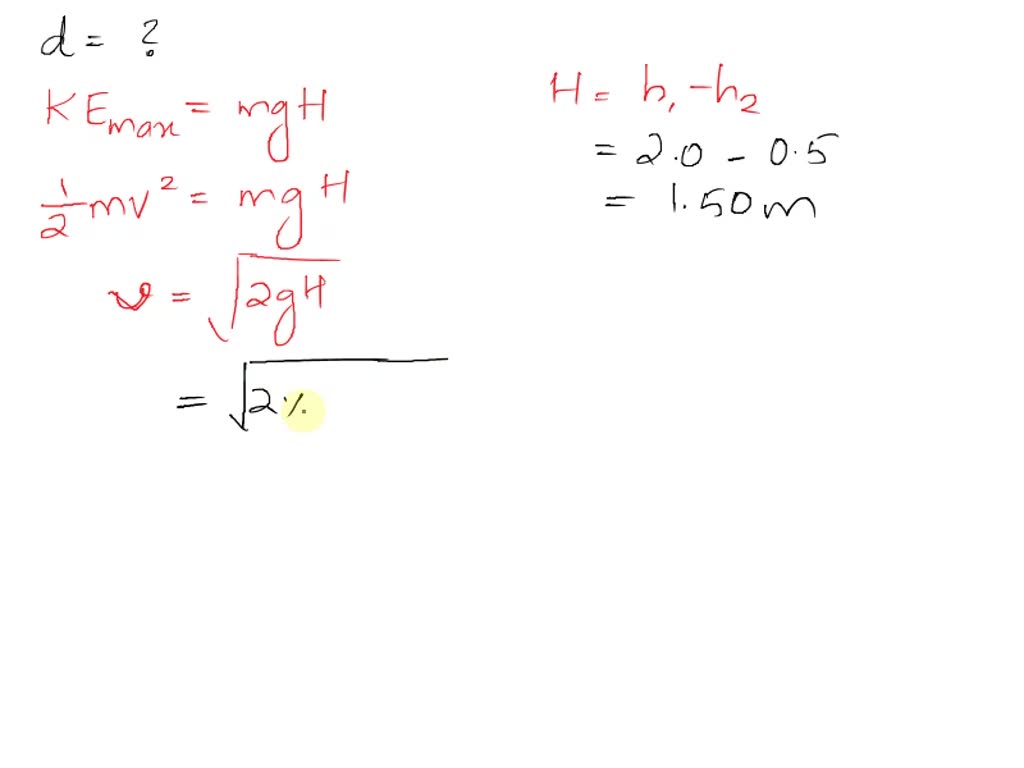 d = ?
KEmax = mgH
1/2 mv² = mgH
v = √2gH
= √2
H = h₁ - h₂
= 2.0 - 0.5
= 1.50 m